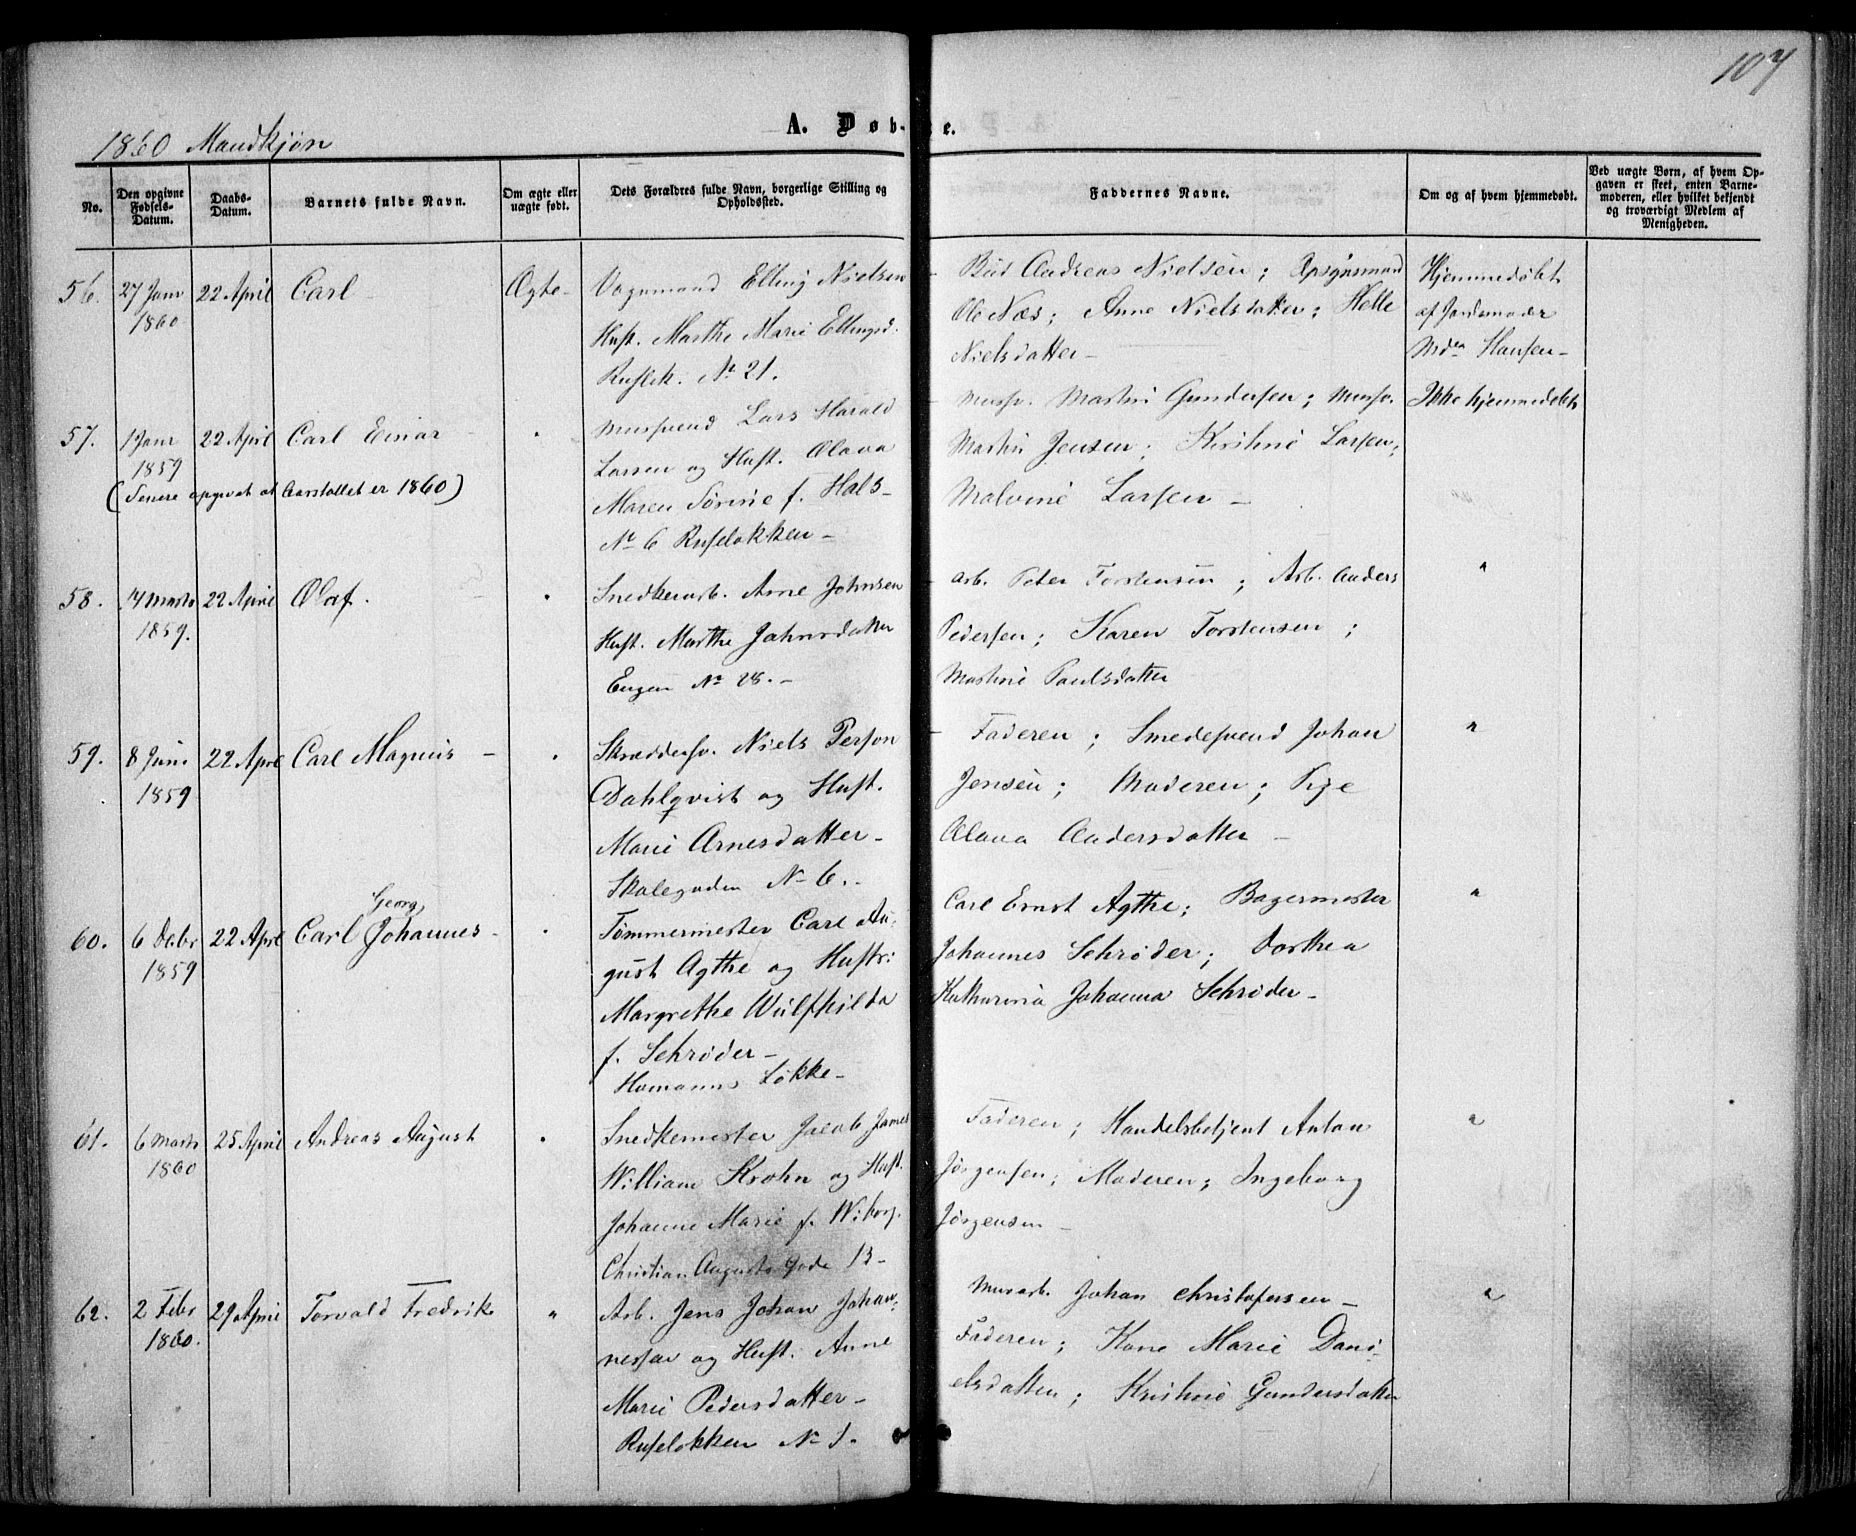 107
1860 Mandkjøn
A. Døb- te.
No.
Den opgivne Fødsels-Datum.
Daabs-Datum.
Barnets fulde Navn.
Om ægte eller uægte født.
Dets Forældres fulde Navn, borgerlige Stilling og Opholdssted.
Faddernes Navne.
Om og af hvem hjemmedøbt.
Ved uægte Børn, af hvem Opgaven er skeet, enten Barnemoderen, eller hvilket bekjendt og troværdigt Medlem af Menigheden.
56. 27 Janr 1860 22 April Carl Ægte
Vognmand Elling Nielsen
Hust. Marthe Marie Ellingsd.
Rusløk. No 21.
Bud Andreas Nielsen; Opsynsmand
Ole Næs; Anne Nielsdatter; Helle
Nielsdatter
Hjemmedøbt
af Jordemoder
Mdm Hansen
57. 1 Janr 1859 22 April Carl Einar "
(Senere opgivet at Aarstallet er 1860)
Mursvend Lars Harald
Larsen og Hust. Olava
Maren Sørine f. Hals
No 6 Ruseløkken
Mursv. Martin Gundersen; Mursv.
Martin Jensen; Kristine Larsen;
Malvine Larsen
Ikke hjemmedøbt
58. 14 Marts 1859. 22 April Olaf. "
Snedkerarb. Arne Johnsen
Hust. Marthe Johnsdatter
Engen No 28.
Arb. Peter Torstensen; Arb. Anders
Pedersen; Karen Torstensen;
Martine Paulsdatter
"
59. 8 Juni 1859 22 Apri Carl Magnus "
Skræddersv. Niels Person
Dahlqvist og Hust.
Marie Arnesdatter
Skolegaden No 6.
Faderen; Smedesvend Johan
Jensen; Moderen; Pige
Olava Andersdatter
"
60. 6 Debr 1859 22 Apri Carl Georg Johannes "
Tømmermester Carl Au-
gust Agthe og Hustr:
Margrethe Wulfhilda
f. Schrøder
Homanns Løkke
Carl Ernst Agthe; Bagermester
Johannes Schrøder; Dorthea
Katharina Johanna Schrøder
"
61. 6 Marts 1860 25 April Andreas August "
Snedkemester Jacob James
William Krohn og Hust.
Johanne Marie f. Wiborg.
Christian Augusts Gade 13
Faderen; Handelsbetjent Anton
Jørgensen; Moderen; Ingeborg
Jørgensen
"
62. 2 Febr 1860. 29 April Torvald Fredrik "
Arb. Jens Johan Johan-
nessen og Hust. Anne
Marie Pedersdatter
Ruseløkken No 1.
Murarb. Johan Christofersen
Faderen; Kone Marie Dani-
elsdatter; Kristine Gundersdatter
"